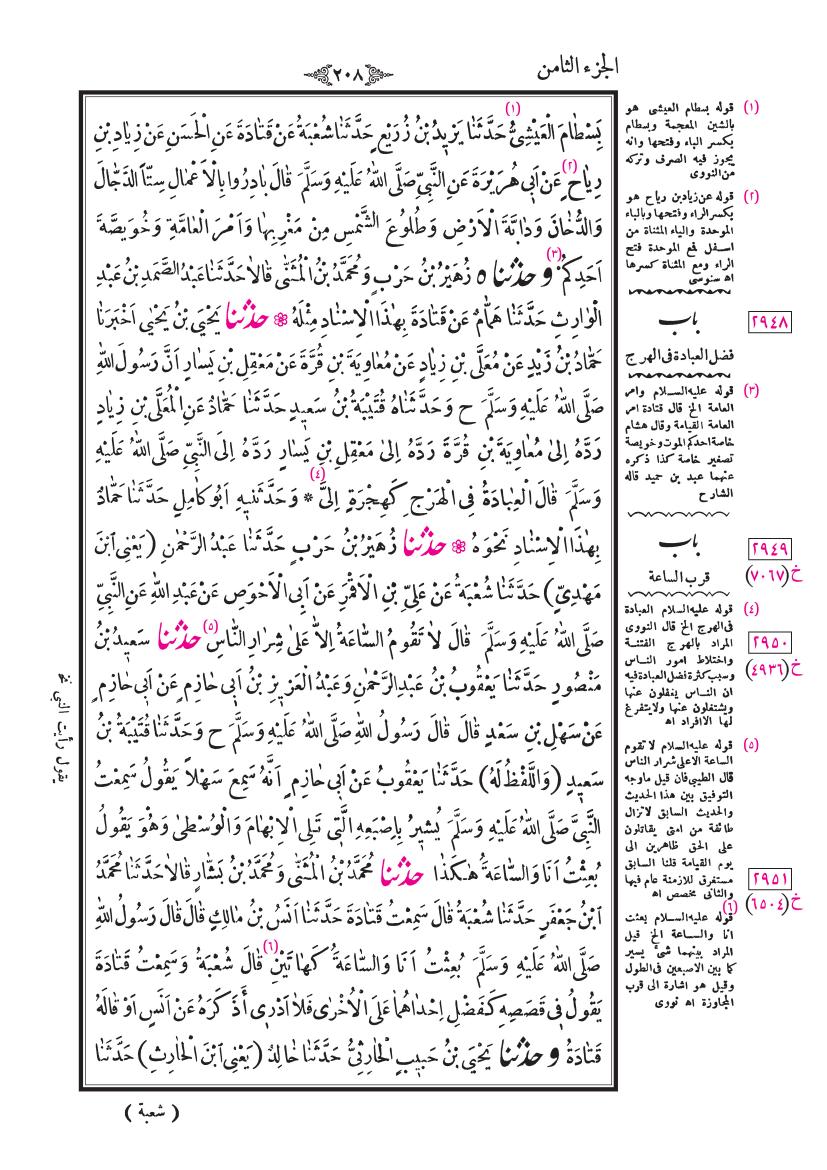 الجزء الثامن
٢٠٨
بِسْطَامَ الْعَيْشِيُّ (١) حَدَّثَنَا يَزِيدُ بْنُ زُرَيْعٍ حَدَّثَنَا شُعْبَةُ عَنْ قَتَادَةَ عَنِ الْحَسَنِ عَنْ زِيَادِ بْنِ
رِيَاحٍ (٢) عَنْ اَبِي هُرَيْرَةَ عَنِ النَّبِيِّ صَلَّى اللهُ عَلَيْهِ وَسَلَّمَ قَالَ بَادِرُوا بِالْاَعْمَالِ سِتّاً الدَّجَّالَ
وَالدُّخَانَ وَدَابَّةَ الْاَرْضِ وَطُلُوعَ الشَّمْسِ مِنْ مَغْرِبِهَا وَاَمْرَ الْعَامَّةِ وَخُوَيْصَّةَ
اَحَدِكُمْ (٣) وحدثنا ٥ زُهَيْرُ بْنُ حَرْبٍ وَمُحَمَّدُ بْنُ الْمُثَنّٰى قَالَا حَدَّثَنَا عَبْدُ الصَّمَدِ بْنُ عَبْدِ
الْوَارِثِ حَدَّثَنَا هَمَّامٌ عَنْ قَتَادَةَ بِهٰذَا الْاِسْنَادِ مِثْلَهُ ❁ حدثنا يَحْيَى بْنُ يَحْيٰى اَخْبَرَنَا
حَمَّادُ بْنُ زَيْدٍ عَنْ مُعَلَّى بْنِ زِيَادٍ عَنْ مُعَاوِيَةَ بْنِ قُرَّةَ عَنْ مَعْقِلِ بْنِ يَسَارٍ اَنَّ رَسُولَ اللهِ
صَلَّى اللهُ عَلَيْهِ وَسَلَّمَ ح وَحَدَّثَنَاهُ قُتَيْبَةُ بْنُ سَعِيدٍ حَدَّثَنَا حَمَّادٌ عَنِ الْمُعَلَّى بْنِ زِيَادٍ
رَدَّهُ اِلٰى مُعَاوِيَةَ بْنِ قُرَّةَ رَدَّهُ اِلٰى مَعْقِلِ بْنِ يَسَارٍ رَدَّهُ اِلَى النَّبِيِّ صَلَّى اللهُ عَلَيْهِ
وَسَلَّمَ قَالَ الْعِبَادَةُ فِي الْهَرْجِ كَهِجْرَةٍ اِلَيَّ (٤) * وَحَدَّثَنِيهِ اَبُو كَامِلٍ حَدَّثَنَا حَمَّادٌ
بِهٰذَا الْاِسْنَادِ نَحْوَهُ ❁ حدثنا زُهَيْرُ بْنُ حَرْبٍ حَدَّثَنَا عَبْدُ الرَّحْمٰنِ (يَعْنِي ابْنَ
مَهْدِيٍّ) حَدَّثَنَا شُعْبَةُ عَنْ عَلِيِّ بْنِ الْاَقْمَرِ عَنْ اَبِي الْاَحْوَصِ عَنْ عَبْدِ اللهِ عَنِ النَّبِيِّ
صَلَّى اللهُ عَلَيْهِ وَسَلَّمَ قَالَ لَا تَقُومُ السَّاعَةُ اِلَّا عَلٰى شِرَارِ النَّاسِ (٥) حدثنا سَعِيدُ بْنُ
مَنْصُورٍ حَدَّثَنَا يَعْقُوبُ بْنُ عَبْدِ الرَّحْمٰنِ وَعَبْدُ الْعَزِيزِ بْنُ اَبِي حَازِمٍ عَنْ اَبِي حَازِمٍ
عَنْ سَهْلِ بْنِ سَعْدٍ قَالَ قَالَ رَسُولُ اللهِ صَلَّى اللهُ عَلَيْهِ وَسَلَّمَ ح وَحَدَّثَنَا قُتَيْبَةُ بْنُ
سَعِيدٍ (وَاللَّفْظُ لَهُ) حَدَّثَنَا يَعْقُوبُ عَنْ اَبِي حَازِمٍ اَنَّهُ سَمِعَ سَهْلاً يَقُولُ سَمِعْتُ
النَّبِيَّ صَلَّى اللهُ عَلَيْهِ وَسَلَّمَ يُشِيرُ بِاِصْبَعِهِ الَّتِي تَلِي الْاِبْهَامَ وَالْوُسْطٰى وَهُوَ يَقُولُ
بُعِثْتُ اَنَا وَالسَّاعَةُ هٰكَذَا حدثنا مُحَمَّدُ بْنُ الْمُثَنّٰى وَمُحَمَّدُ بْنُ بَشَّارٍ قَالَا حَدَّثَنَا مُحَمَّدُ
ابْنُ جَعْفَرٍ حَدَّثَنَا شُعْبَةُ قَالَ سَمِعْتُ قَتَادَةَ حَدَّثَنَا اَنَسُ بْنُ مَالِكٍ قَالَ قَالَ رَسُولُ اللهِ
صَلَّى اللهُ عَلَيْهِ وَسَلَّمَ بُعِثْتُ اَنَا وَالسَّاعَةُ كَهَاتَيْنِ (٦) قَالَ شُعْبَةُ وَسَمِعْتُ قَتَادَةَ
يَقُولُ فِي قَصَصِهِ كَفَضْلِ اِحْدَاهُمَا عَلَى الْاُخْرٰى فَلَا اَدْرِي أَذَكَرَهُ عَنْ اَنَسٍ اَوْ قَالَهُ
قَتَادَةُ وحدثنا يَحْيَى بْنُ حَبِيبٍ الْحَارِثِيُّ حَدَّثَنَا خَالِدٌ (يَعْنِي ابْنَ الْحَارِثِ) حَدَّثَنَا
( شعبة )
يقول رأيت النبي نخ
(١) قوله بسطام العيشى هو
بالشين المعجمة وبسطام
بكسر الباء وفتحها وانه
يجوز فيه الصرف وتركه
من النووى
(٢) قوله عن زياد بن رياح هو
بكسر الراء وفتحها وبالباء
الموحدة والياء المثناة من
اسفل فمع الموحدة فتح
الراء ومع المثناة كسرها
اه سنوسى
٢٩٤٨
باب
فضل العبادة فى الهرج
(٣) قوله عليه السلام وامر
العامة الخ قال قتادة امر
العامة القيامة وقال هشام
خاصة احدكم الموت وخويصة
تصغير خاصة كذا ذكره
عنهما عبد بن حميد قاله
الشارح
٢٩٤٩
باب
خ (٧٠٦٧)
قرب الساعة
(٤) قوله عليه السلام العبادة
فى الهرج الخ قال النووى
المراد بالهرج الفتنة
واختلاط امور الناس
وسبب كثرة فضل العبادة فيه
ان الناس يغفلون عنها
ويشتغلون عنها ولا يتفرغ
لها الا افراد اه
٢٩٥٠
خ (٤٩٣٦)
(٥) قوله عليه السلام لا تقوم
الساعة الا على شرار الناس
قال الطيبى فان قيل ما وجه
التوفيق بين هذا الحديث
والحديث السابق لا تزال
طائفة من امتى يقاتلون
على الحق ظاهرين الى
يوم القيامة قلنا السابق
مستغرق للازمنة عام فيها
والثانى مخصص اه
٢٩٥١
خ (٦٥٠٤)
(٦) قوله عليه السلام بعثت
انا والساعة الخ قيل
المراد بينهما شئ يسير
كما بين الاصبعين فى الطول
وقيل هو اشارة الى قرب
المجاوزة اه نووى